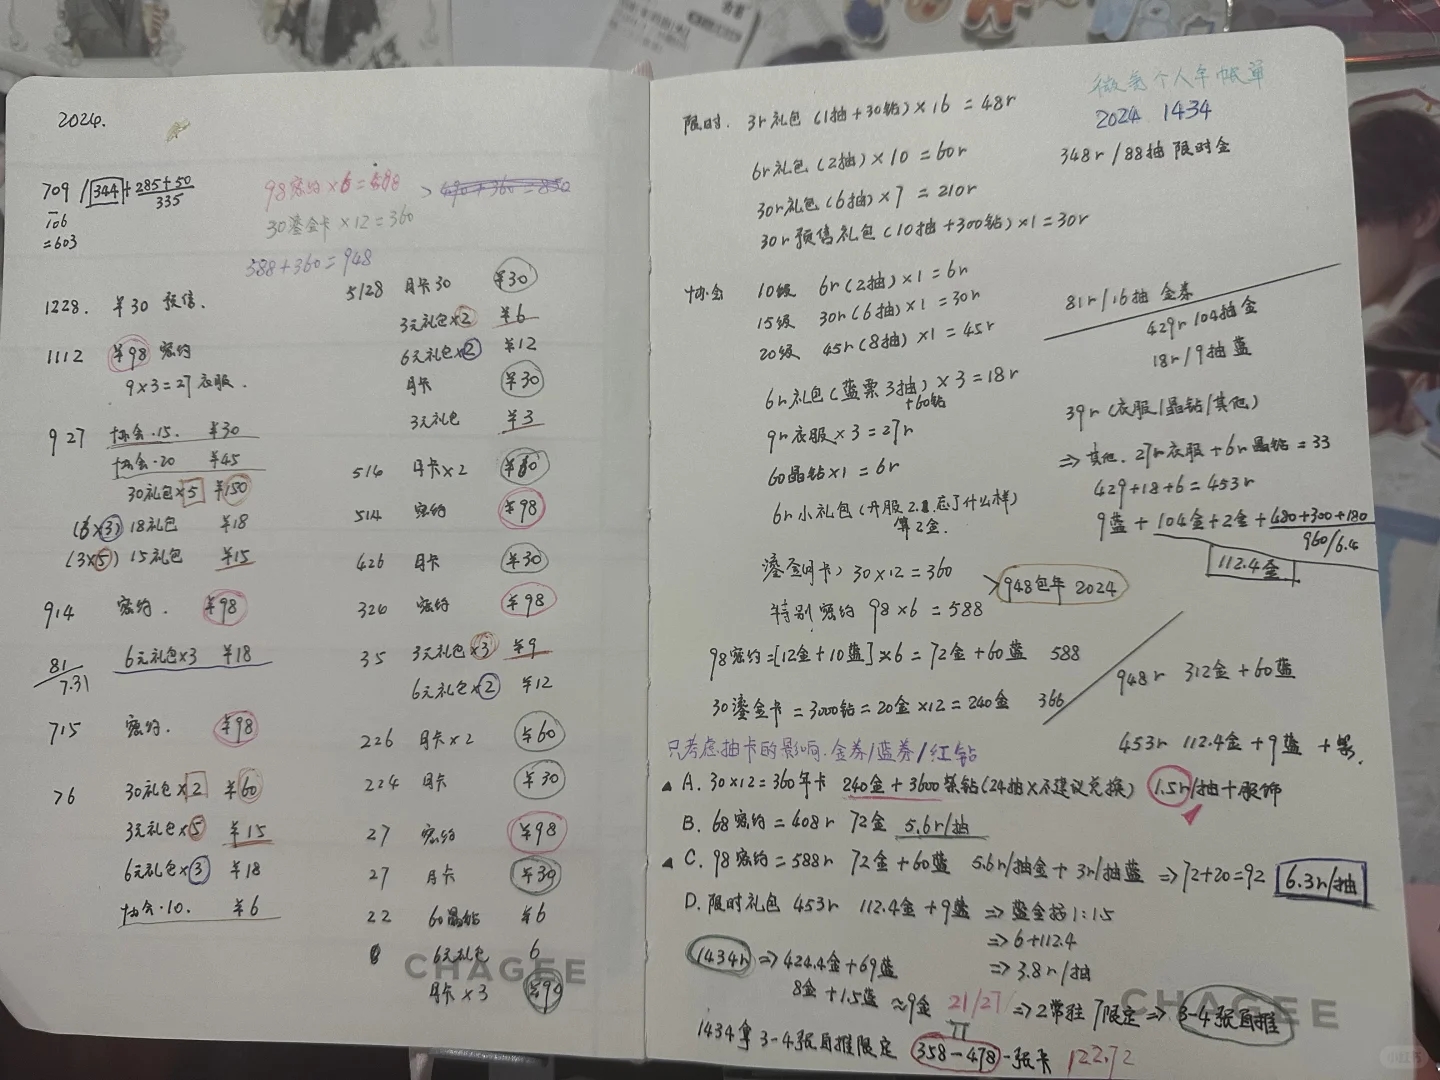 2024.
709 / 344 + 285+50
335
106
=603
98密约×6=588
30鎏金卡×12=360
588+360=948
1228. ¥30 预售.
1112 ¥98 密约
9×3=27衣服.
927 协会·15. ¥30
协会·20 ¥45
30礼包×5 ¥150
(6×3) 18礼包 ¥18
(3×5) 15礼包 ¥15
914 密约. ¥98
81/7.31 6元礼包×3 ¥18
715 密约. ¥98
76 30礼包×2 ¥60
3元礼包×5 ¥15
6元礼包×3 ¥18
协会·10. ¥6
5128 月卡30 ¥30
3元礼包×2 ¥6
6元礼包×2 ¥12
月卡 ¥30
3元礼包 ¥3
516 月卡×2 ¥60
514 密约 ¥98
426 月卡 ¥30
326 密约 ¥98
35 3元礼包×3 ¥9
6元礼包×2 ¥12
226 月卡×2 ¥60
224 月卡 ¥30
27 密约 ¥98
27 月卡 ¥30
22 60晶钻 ¥6
6元礼包 6
月卡×3 ¥90
CHAGEE
个人年帐单
2024 1434
限时. 3r礼包(1抽+30钻)×16=48r
6r礼包(2抽)×10=60r
30r礼包(6抽)×7=210r
30r预售礼包(10抽+300钻)×1=30r
348r/88抽 限时金
协会 10级 6r(2抽)×1=6r
15级 30r(6抽)×1=30r
20级 45r(8抽)×1=45r
81r/16抽 金券
429r 104抽金
18r/9抽蓝
6r礼包(蓝票3抽)×3=18r
+60钻
9r衣服×3=27r
60晶钻×1=6r
6r小礼包(开服2.1忘了什么样)
算2金.
39r(衣服/晶钻/其他)
⇒其他. 27r衣服+6r晶钻=33
429+18+6=453r
9蓝+104金+2金+480+300+180
960/6.4
112.4金
鎏金(月卡) 30×12=360
特别密约 98×6=588
948包年 2024
98密约=[12金+10蓝]×6=72金+60蓝 588
30鎏金卡=3000钻=20金×12=240金 366
948r 312金+60蓝
453r 112.4金+9蓝+紫.
只考虑抽卡的影响:金券/蓝券/红钻
▲A. 30×12=360年卡 240金+3600紫钻(24抽×不建议兑换) 1.5r/抽+服饰
B. 68密约=408r 72金 5.6r/抽
▲C. 98密约=588r 72金+60蓝 5.6r/抽金+3r/抽蓝⇒72+20=92 6.3r/抽
D. 限时礼包 453r 112.4金+9蓝⇒蓝金按1:1.5
⇒6+112.4
⇒3.8r/抽
1434r⇒424.4金+69蓝
8金+1.5蓝≈9金 21/27⇒2常驻7限定⇒3-4张直推
1434拿3-4张直推限定 358-478-张卡 122.72
CHAGEE
小红书